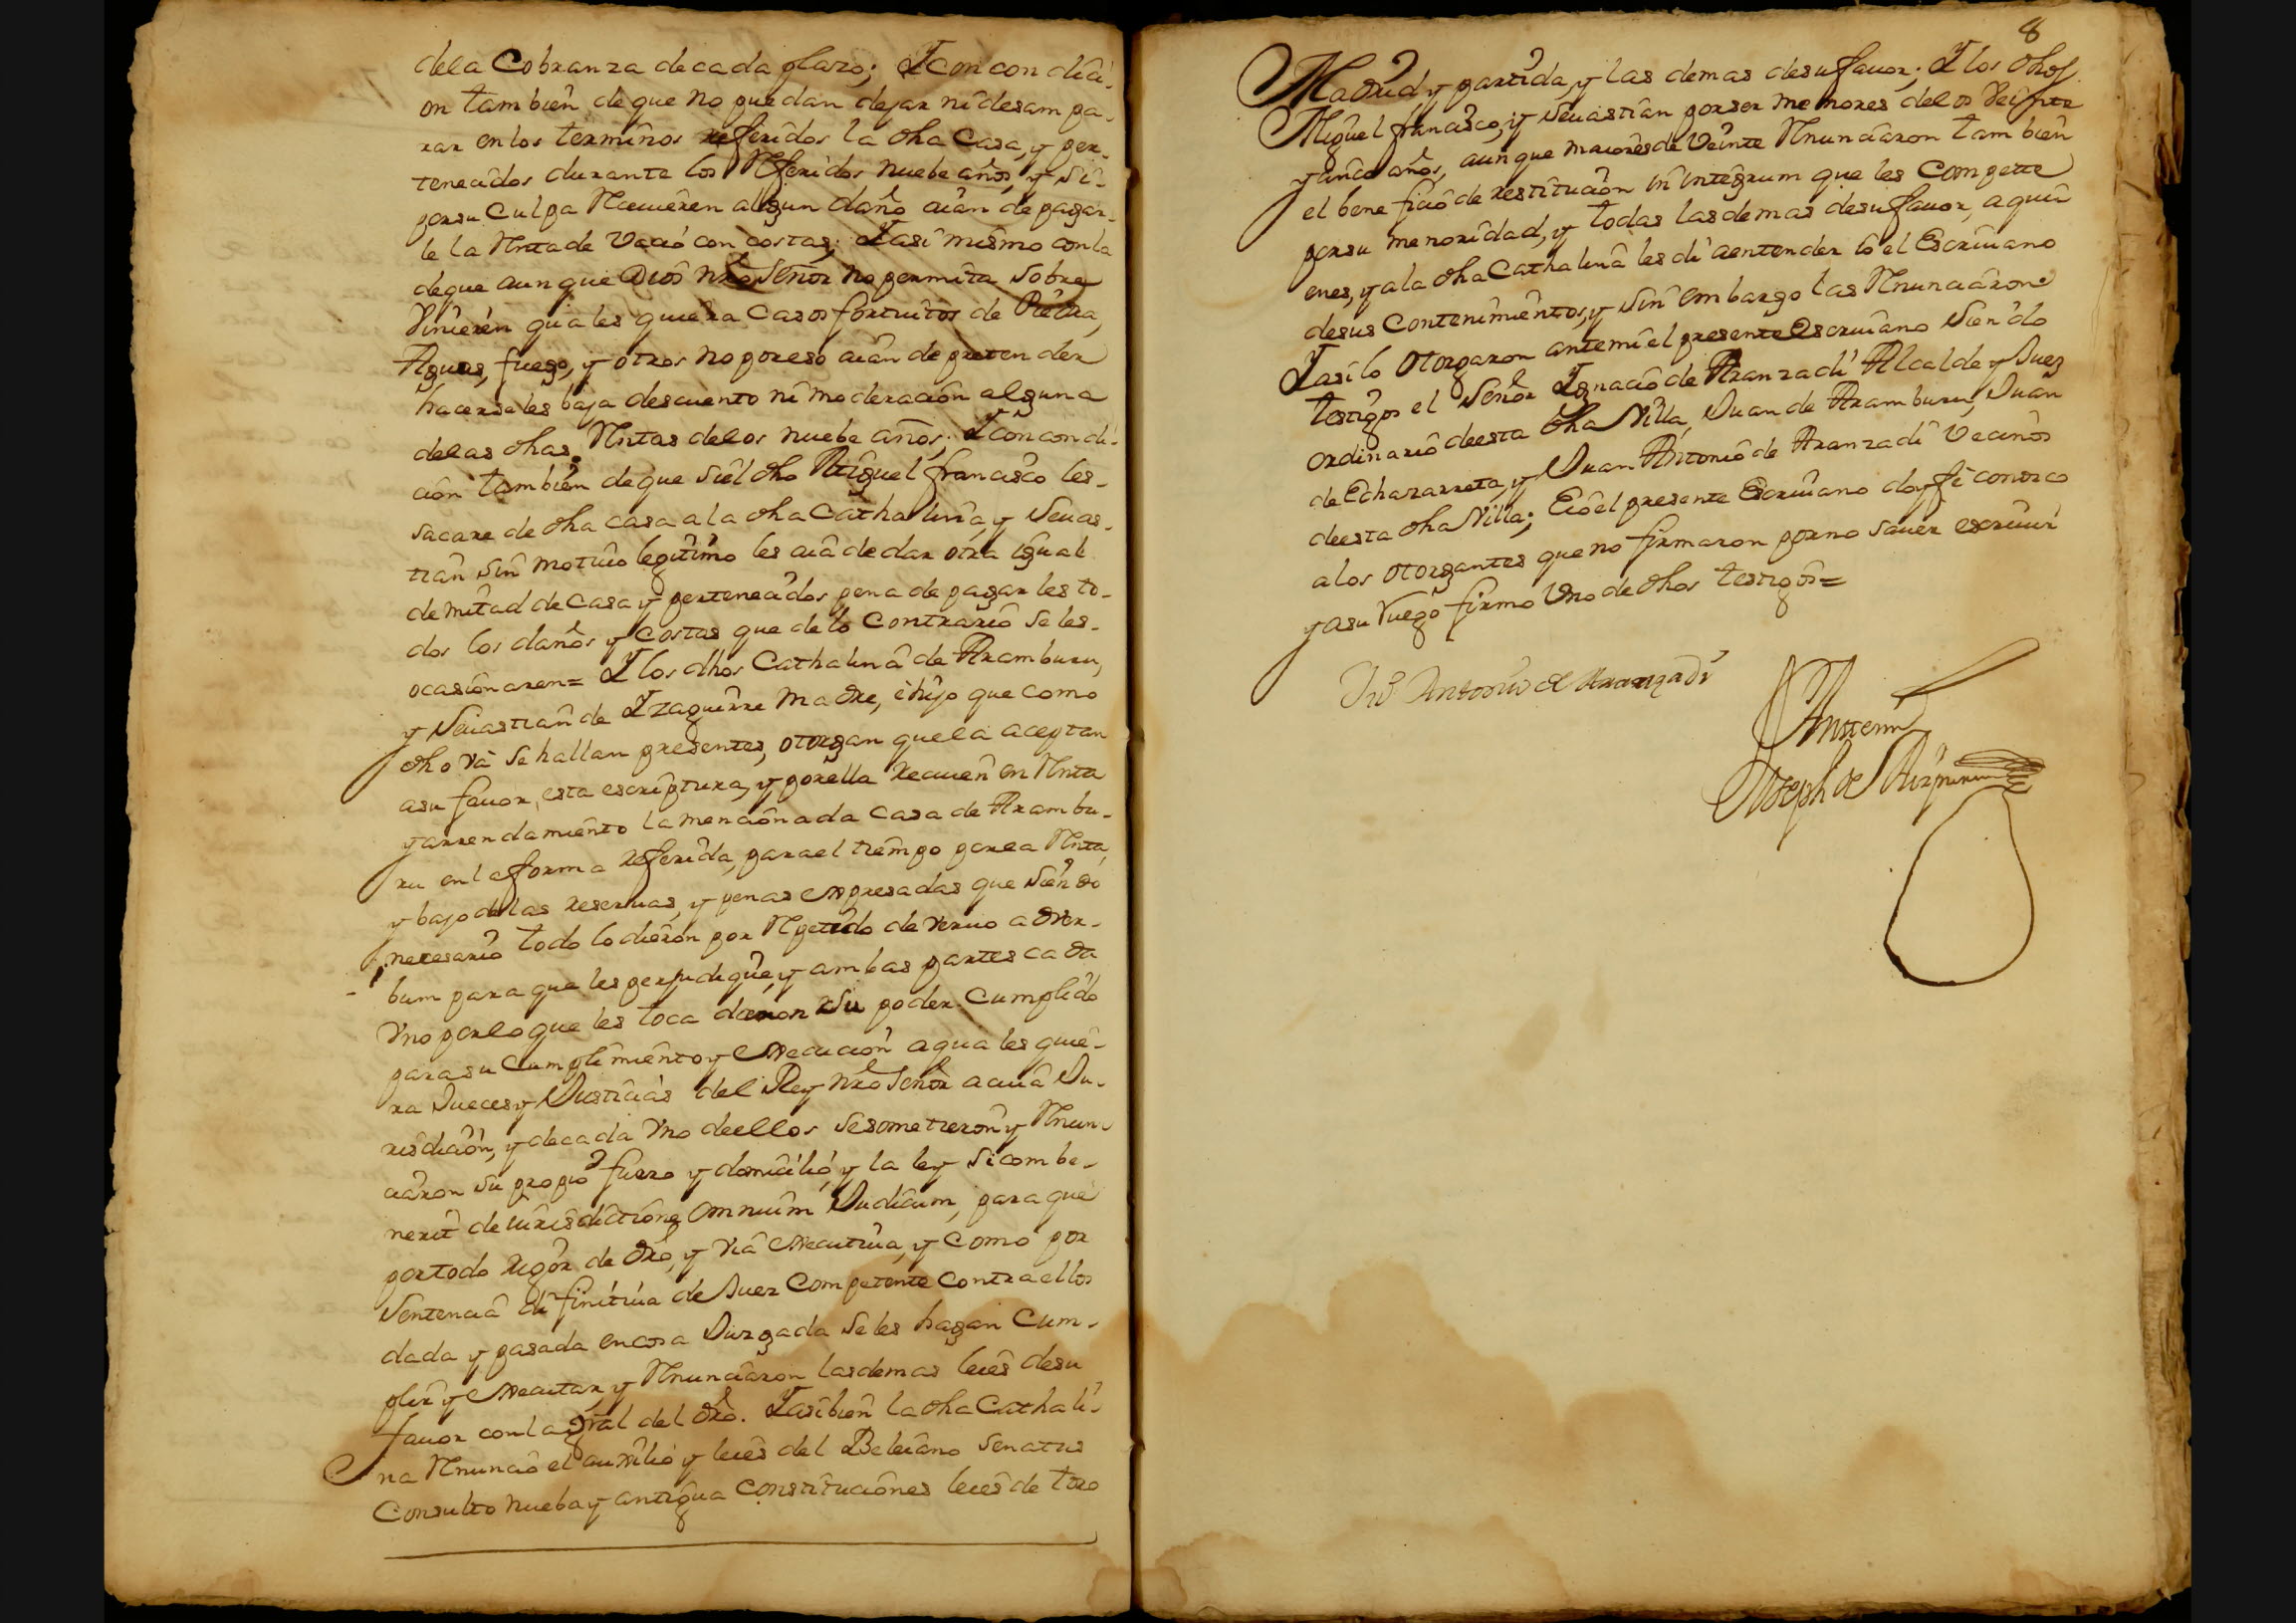 dela Cobranza decada plazo; Y con condici-
on tambien de que no puedan dejar ni desampa-
rar en los terminos referidos la dha Casa, y per-
tenecidos durante los Referidos nuebe años, y Si-
por su Culpa Recivieren algun daño aian de pagar-
le la Renta de vacio con costas; Y asi mismo con la
de que aunque Dios nro Señor no permita Sobre
Vinieren quales quiera Casos fortuitos de Piedra,
Aguas, fuego, y otros no por eso aian de pretender
hacerseles baja descuento ni moderacion alguna
de las dhas Rentas delos nuebe años; Y con condi-
cion tambien de que si el dho Miguel francisco les-
sacare de dha casa a la dha Cathalina, y Sevas-
tian sin motivo legitimo les aia de dar otra igual
de mitad de Casa y pertenecidos pena de pagarles to-
dos los daños y Costas que de lo Contrario se les-
ocasionaren= Y los dhos Cathalina de Aramburu,
y Sevastian de Yzaguirre Madre, è hijo que como
dho va se hallan presentes, otorgan que la aceptan
a su favor, esta escriptura, y por ella reciven en Renta
y arrendamiento la mencionada Casa de Arambu-
ru en la forma referida, para el tiempo por la Renta,
y bajo de las reservas, y penas expresadas que siendo
necesario todo lo dieron por Repetido de vervo adver-
bum para que les perjudique, y ambas partes cada
Vno por lo que les toca dieron su poder Cumplido
para su Cumplimiento y execucion a quales quie-
ra Jueces y Justicias del Rey nro Señor a cuia Ju-
risdicion, y de cada vno de ellos se sometieron y Renun-
ciaron su propio fuero y domicilio, y la ley si combe-
nerit de iurisdictione omnium Judicum, para que
por todo rigor de dro, y via executiva, y como por
Sentencia difinitiva de Juez Competente contra ellos
dada y pasada en cosa Juzgada se les hagan Cum-
plir y executar, y Renunciaron las demas leies de su
favor con la gral del dro. Y asi bien la dha Cathali-
na Renuncio el auxilio y leies del Beleiano Senatus
Consulto nueba y antigua Constituciones leies de toro
8
Madrid y partida, y las demas de su favor; Y los dhos
Miguel francisco, y Sevastian por ser menores de los Veinte
y cinco años, aunque maiores de Veinte Renunciaron tambien
el beneficio de restitucion in integrum que les Compette
por su menoridad, y todas las demas de su favor, a qui-
enes, y a la dha Cathalina les di a entender io el Escrivano
de sus Contenimientos, y sin embargo las Renunciaron
Y asi lo otorgaron ante mi el presente Escrivano siendo
testigos el Señor Ygnacio de Aranzadi Alcalde y Juez
ordinario de esta dha Villa, Juan de Aramburu, Juan
de Echazarreta, y Juan Antonio de Aranzadi Vecinos
de esta dha Villa; E io el presente Escrivano doy fè conozco
a los otorgantes que no firmaron por no saver escrivir
y a su ruego firmo Vno de dhos testigos=
Jn Antonio de Aranzadi
Ante mi
Joseph de